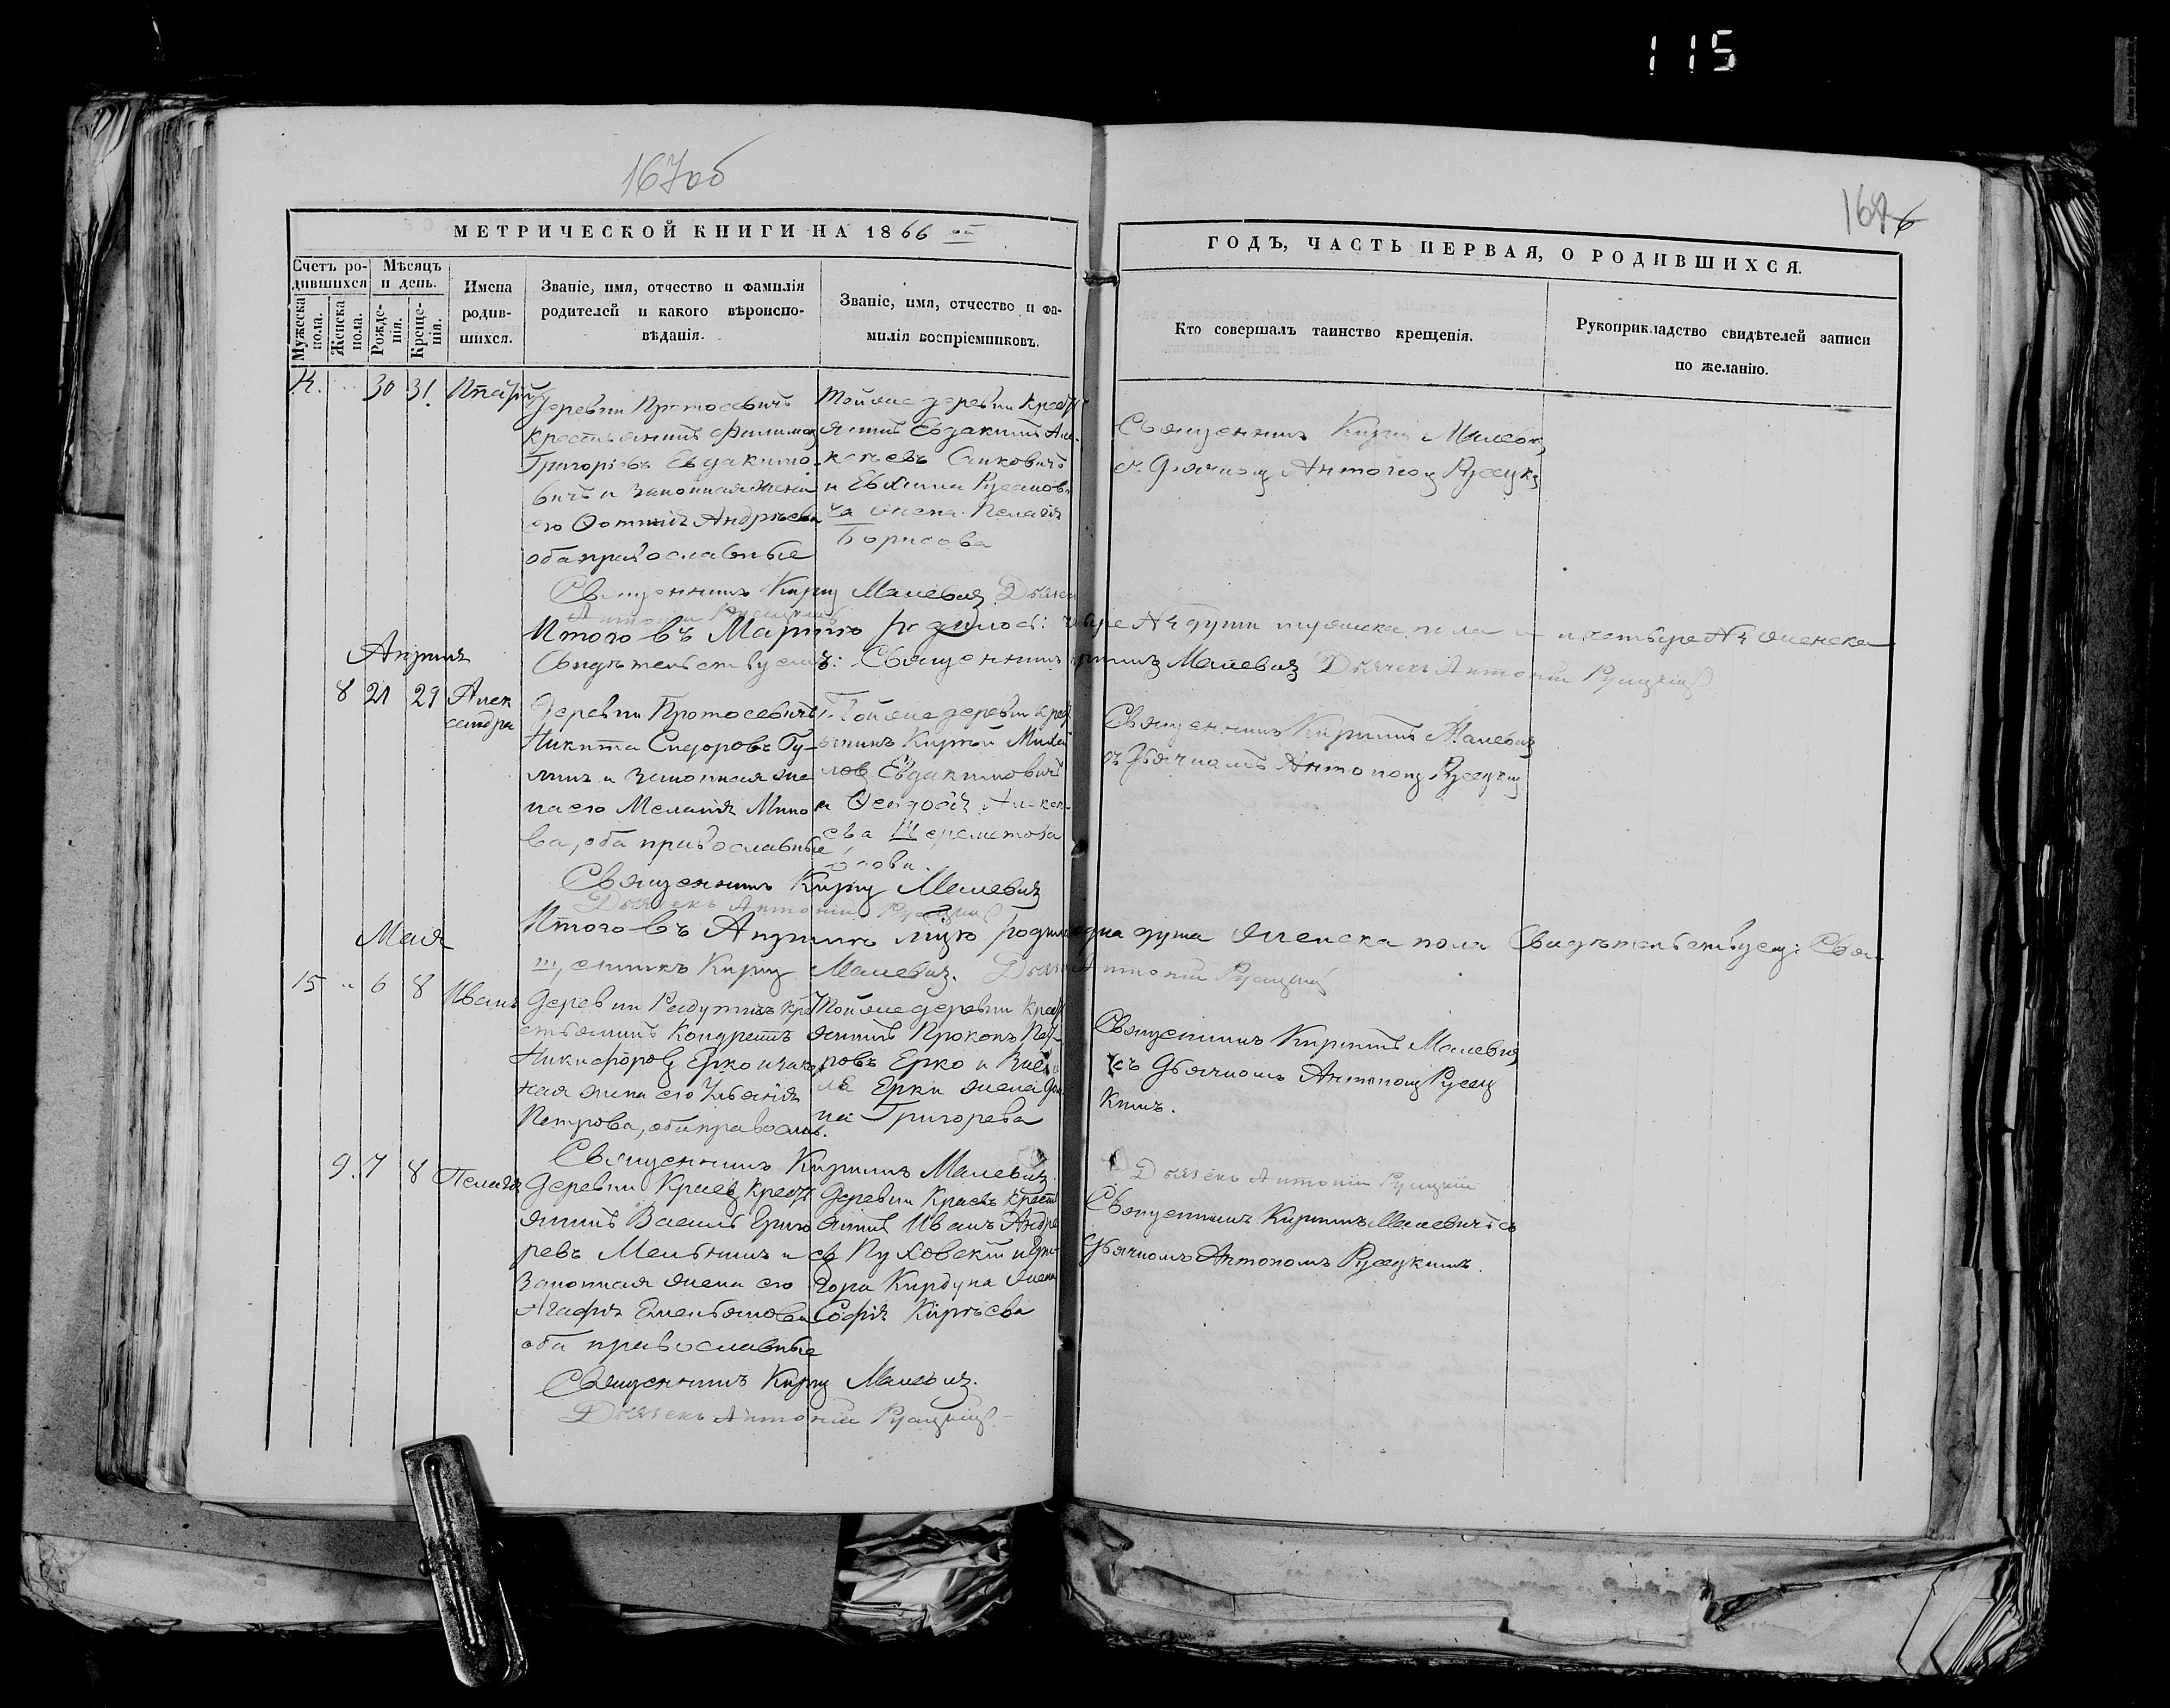 115
167об
168
6
МЕТРИЧЕСКОЙ КНИГИ НА 1866 ой
ГОДЪ, ЧАСТЬ ПЕРВАЯ, О РОДИВШИХСЯ.
Счетъ ро-
дившихся
Мужеска
пола.
Женска
пола.
Мѣсяцъ
и день.
Рожде-
нія.
Креще-
нія.
Имена
родив-
шихся.
Званіе, имя, отчество и фамилія
родителей и какого вѣроиспо-
вѣданія.
Званіе, имя, отчество и фа-
милія воспріемниковъ.
Кто совершалъ таинство крещенія.
Рукоприкладство свидѣтелей записи
по желанію.
30 31.
Деревни Протосевичъ
крестьянинъ Филимонъ
Григорьевъ Евдакимо-
вичъ и законная жена
его Фотинія Андреева
оба православные
Тойже деревни крест
янинъ Евдакимъ Але-
ксѣевъ
и Евхима
жена Пелагія
Борисова
Священникъ Кирилъ Малевичъ
съ Дьячкомъ Антономъ Русецки
Священникъ Кирилъ Малевичъ Дьячекъ
Антоній Русецкій
Итого въ Мартѣ родилось: четыре №4 души мужеска пола и четыре №4 женска
Свидѣтельствуемъ: Священникъ Кирилъ Малевичъ Дьячекъ Антоній Русецкій
Апрѣля
8 21 29 Алек
сандра
Деревни Протосевичъ
Никита Сидоровъ Гу-
и законная же
на его Меланія Мино
ва, оба православные
Тойже деревни крес
янинъ Кирилъ Михай
ловъ Евдакимовичъ
и Феодосія Алексе-
ева Шереметова
вдова.
Священникъ Кирилъ Малевичъ
съ Дьячкомъ Антономъ Русецким
Священникъ Кирилъ Малевичъ
Дьячекъ Антоній Русецкій
Мая
Итого въ Апрѣлѣ мцѣ родилась одна душа женска пола Свидѣтельствуемъ: Свя-
щенникъ Кирилъ Малевичъ. Дьячекъ Антоній Русецкій
15 .. 6 8 Иванъ
Деревни Радутичъ кре
стьянинъ Кондратъ
Никифоровъ Ерко и закон
ная жена его Ульянія
Петрова, оба правосл.
Тойже деревни крест
янинъ Прокопъ Пет-
ровъ Ерко и
Ерки жена
на Григорева
Священникъ Кирилъ Малевичъ
съ Дьячкомъ Антономъ Русец
кимъ.
Священникъ Кирилъ Малевичъ.
Дьячекъ Антоній Русецкій
9. 7 8 Пелагія
Деревни Краевъ крест
янинъ Василь Григо
ревъ Мельникъ и
законная жена его
Агафія Емельянова
оба православные
Деревни Краевъ крест
янинъ Иванъ Андре
евъ Пуховскій и Гри
гора Кирдуна жена
Софія Киреева
Священникъ Кирилъ Малевичъ съ
Дьячкомъ Антономъ Русецкимъ.
Священникъ Кирилъ Малевичъ.
Дьячекъ Антоній Русецкій